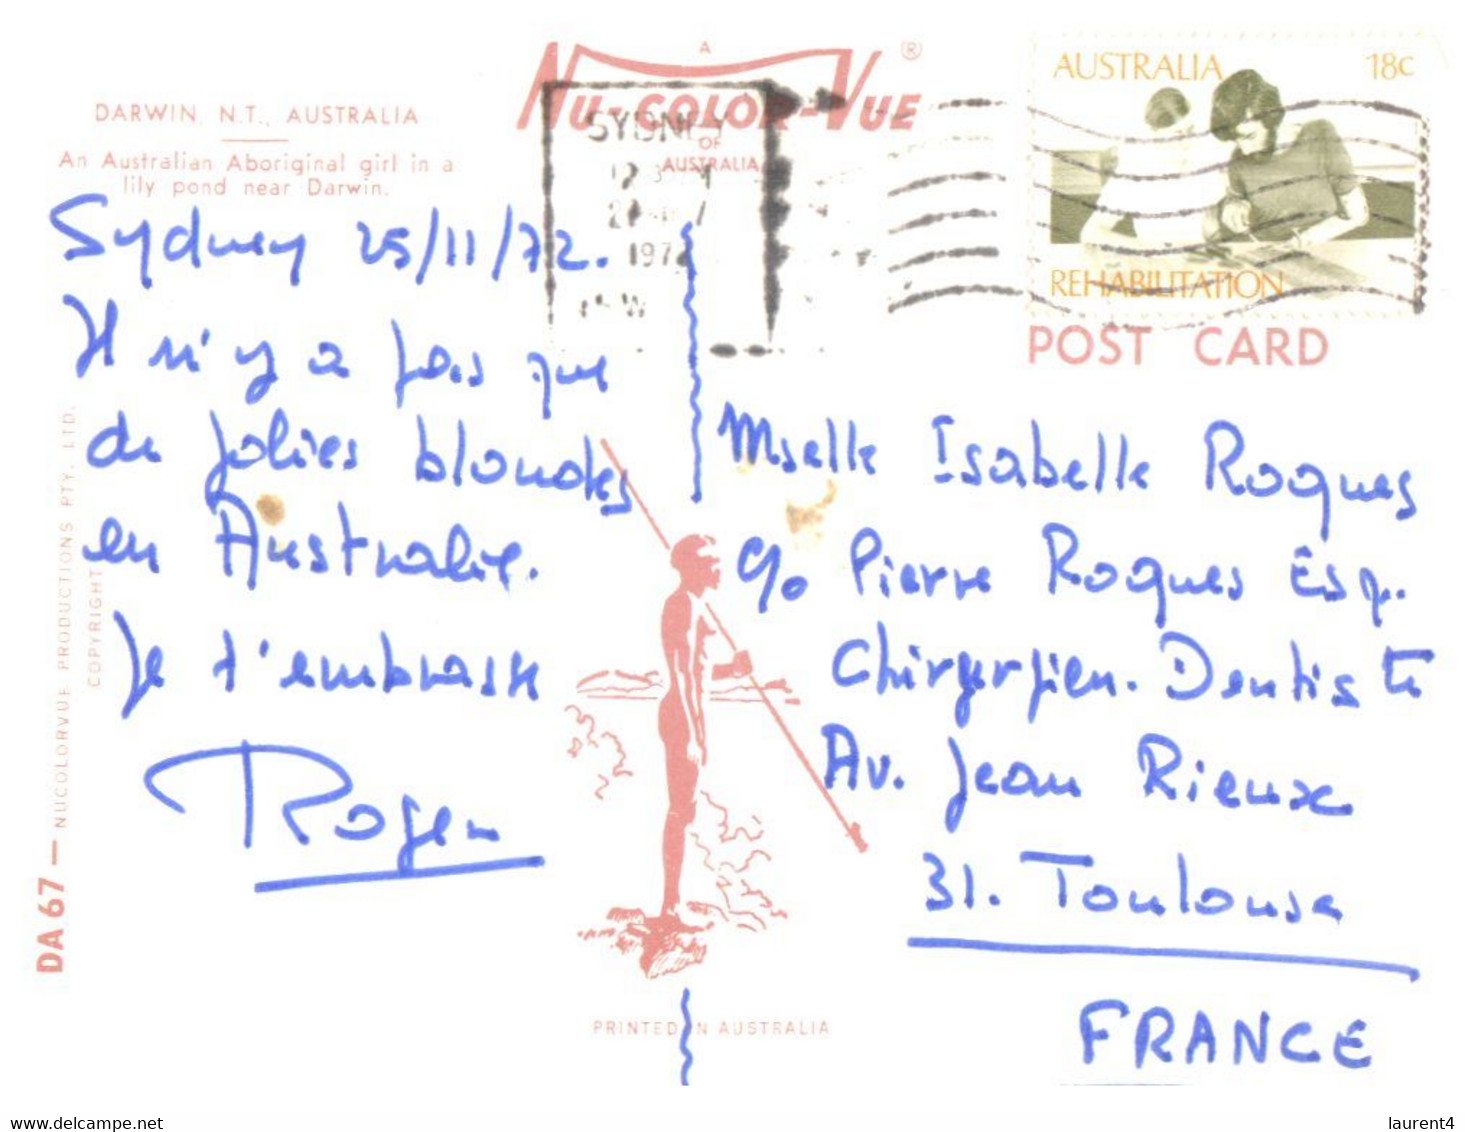 A
NU-COLOR-VUE ®
OF
AUSTRALIA
DARWIN, N.T., AUSTRALIA
An Australian Aboriginal girl in a
lily pond near Darwin.
SYDNEY
197
AUSTRALIA 18c
REHABILITATION
POST CARD
Sydney 25/11/72.
Il n'y a pas que
de jolies blondes
en Australie.
Je t'embrasse
Roger
Mselle Isabelle Roques
c/o Pierre Roques Esq.
Chirgergien. Dentiste
Av. Jean Rieux
31. Toulouse
FRANCE
DA 67 — NUCOLORVUE PRODUCTIONS PTY. LTD.
COPYRIGHT
PRINTED IN AUSTRALIA
delcampe.net
laurent4